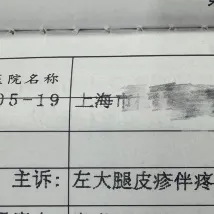 医院名称
05-19 上海市
主诉: 左大腿皮疹伴疼